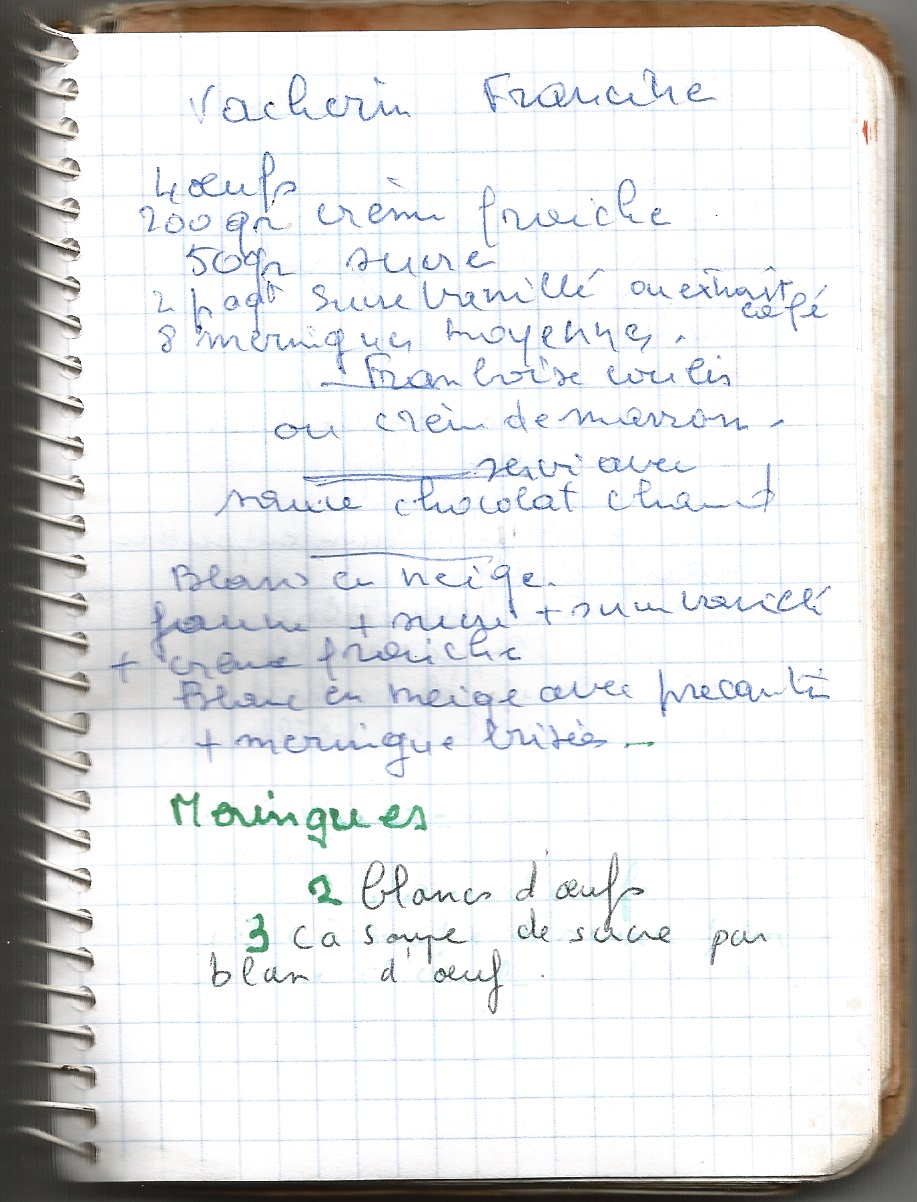 Vacherin Francine
4 œufs
200 gr crème fraîche
50 gr sucre
2 paqt sucre vanillé ou extrait café
8 meringues moyennes.
Framboise coulis
ou crèm de marron.
servi avec
sauce chocolat chaud
Blanc en neige.
jaune + sucre + sucre vanillé
+ crème fraiche
Blanc en neige avec precauti
+ meringue brisées
Meringues
2 blancs d'œufs
3 c a soupe de sucre par
blan d'œuf.